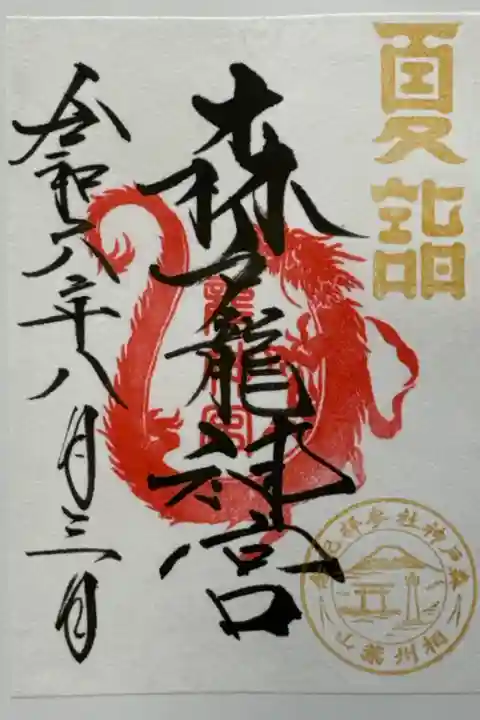 夏詣
森戸龍神宮
令和六年八月三日
森戸神社参拝記念
相州葉山